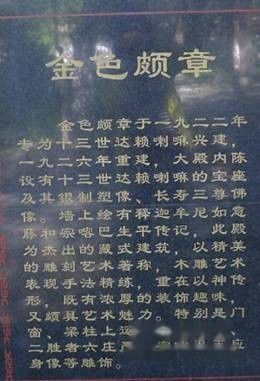 金色颇章
金色颇章于一九二二年
专为十三世达赖喇嘛兴建，
一九三六年重建，大殿内陈
设有十三世达赖喇嘛的宝座
及其银制塑像、长寿三尊佛
像。墙上绘有释迦牟尼如意
藤和宗喀巴生平传记。此殿
为杰出的藏式建筑，以精美
的雕刻艺术著称，木雕艺术
表现手法精练，在以神传
形，既有浓厚的装饰趣味，
又颇具魅力。特别是门、
窗、梁柱上六
二胜者等雕饰。